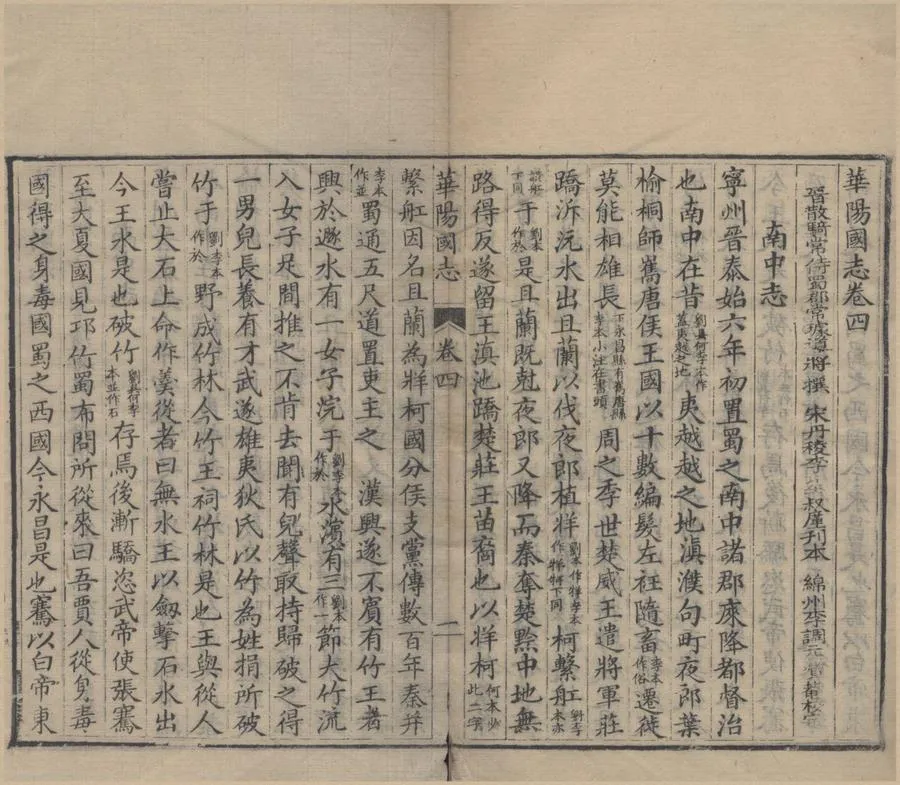 華陽國志卷四
晉散騎常侍蜀郡常璩道將撰 宋丹稜李叔廑刊本 綿州李調元校定
南中志
寧州晉泰始六年初置蜀之南中諸郡庲降都督治
也南中在昔劉吳何李本作蓋夷越之地夷越之地滇濮句町夜郎葉
榆桐師嶲唐侯王國以十數編髮左衽隨畜李本作俗遷徙
莫能相雄長下永昌縣有嶲唐縣李本小注在書頭周之季世楚威王遣將軍莊
蹻泝沅水出且蘭以伐夜郎植牂劉本作牂李本作牂下同柯繫舡劉李本亦
誤舡下同于劉本作於是且蘭既尅夜郎又降而秦奪楚黔中地無
路得反遂留王滇池蹻楚莊王苗裔也以牂柯何本少此二字
華陽國志 卷四 一
繫舡因名且蘭為牂柯國分侯支黨傳數百年秦并
李本作並蜀通五尺道置吏主之 漢興遂不賓有竹王者
興於遯水有一女子浣于劉李作於水濱有三劉本作一節大竹流
入女子足間推之不肯去聞有兒聲取持歸破之得
一男兒長養有才武遂雄夷狄氏以竹為姓捐所破
竹于劉李本作於野成竹林今竹王祠竹林是也王與從人
嘗止大石上命作羹從者曰無水王以劒擊石水出
今王水是也破竹劉吳何李本並作石存焉後漸驕恣武帝使張騫
至大夏國見邛竹蜀布問所從來曰吾賈人從身毒
國得之身毒國蜀之西國今永昌是也騫以白帝東